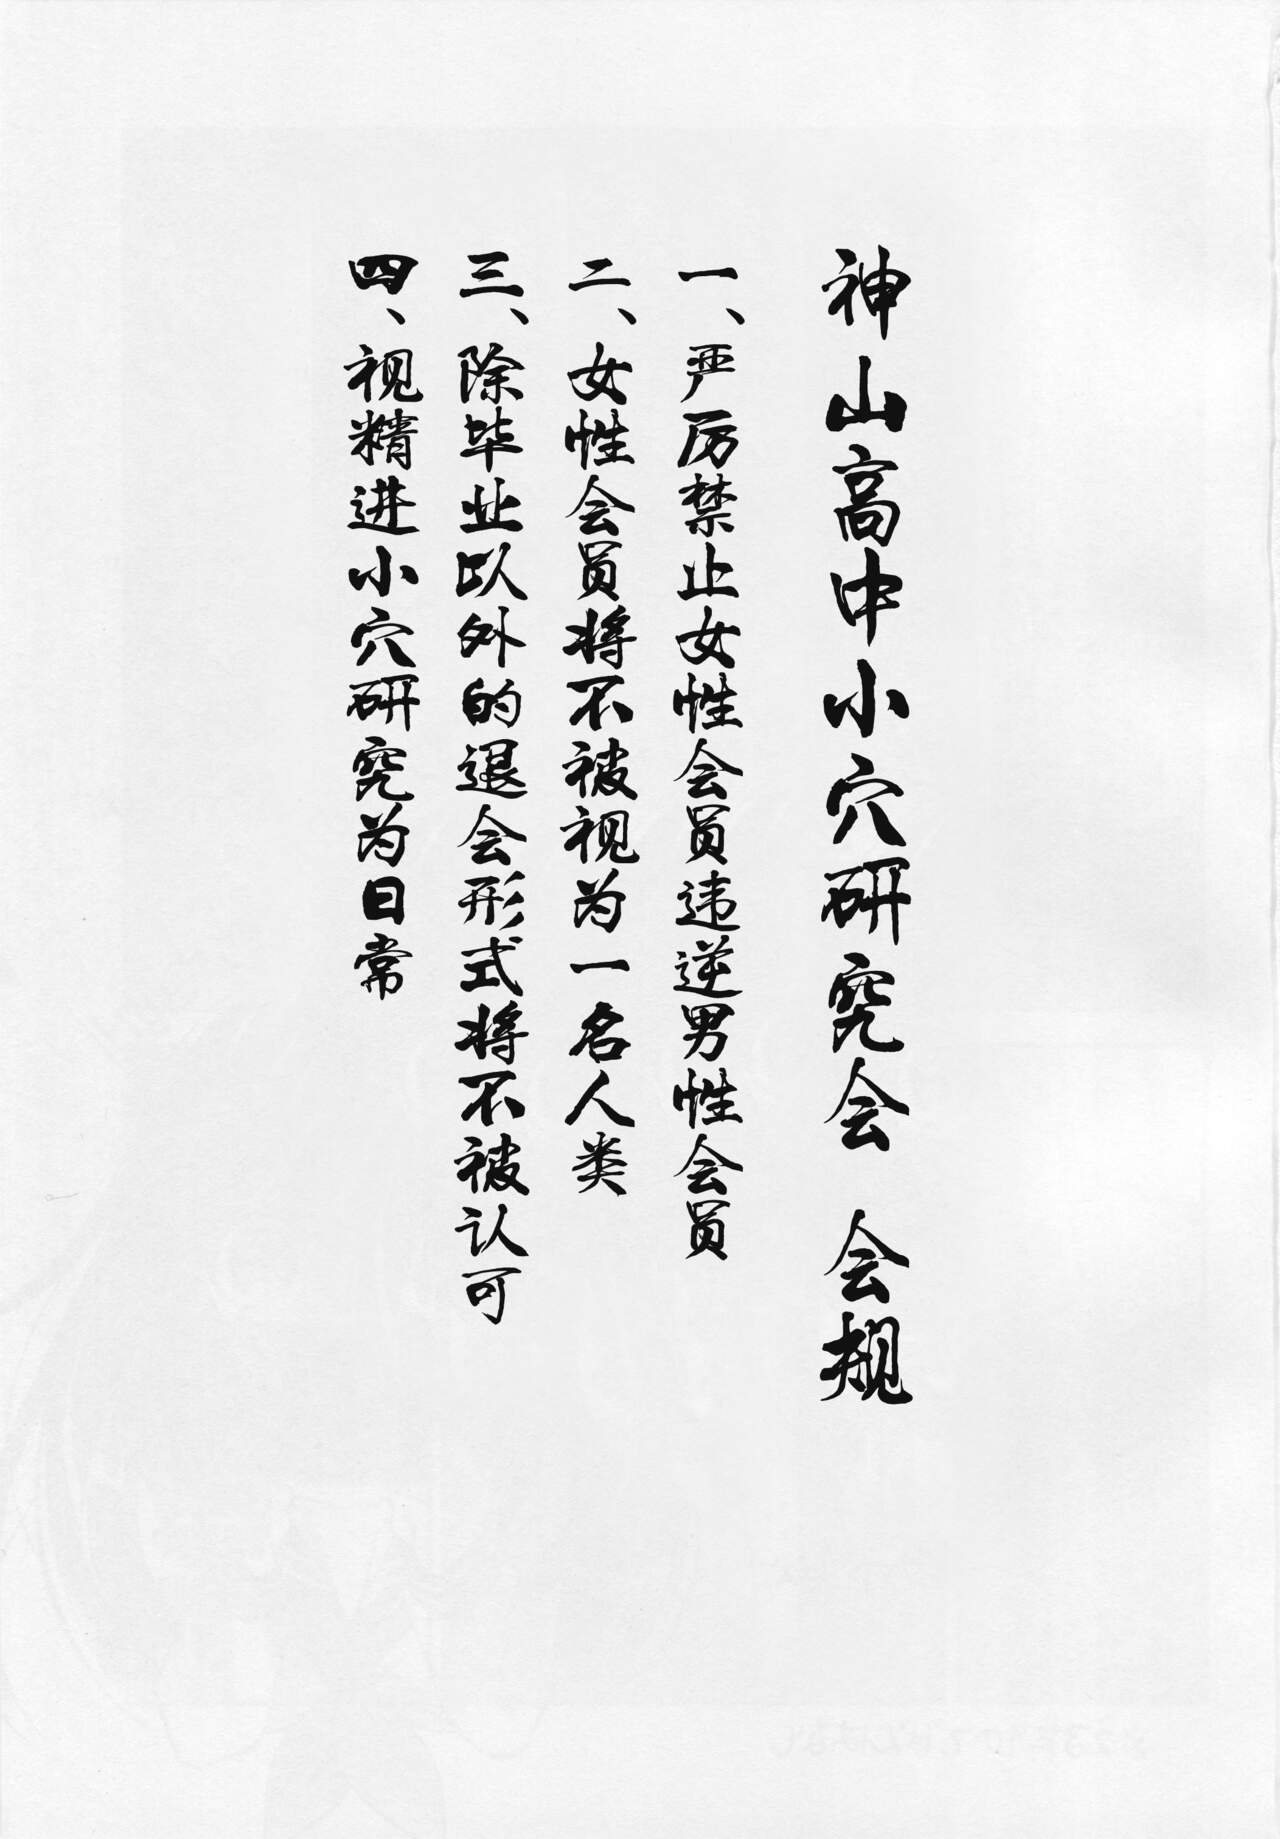 神山高中小穴研究会 会规
一、严厉禁止女性会员违逆男性会员
二、女性会员将不被视为一名人类
三、除毕业以外的退会形式将不被认可
四、视精进小穴研究为日常